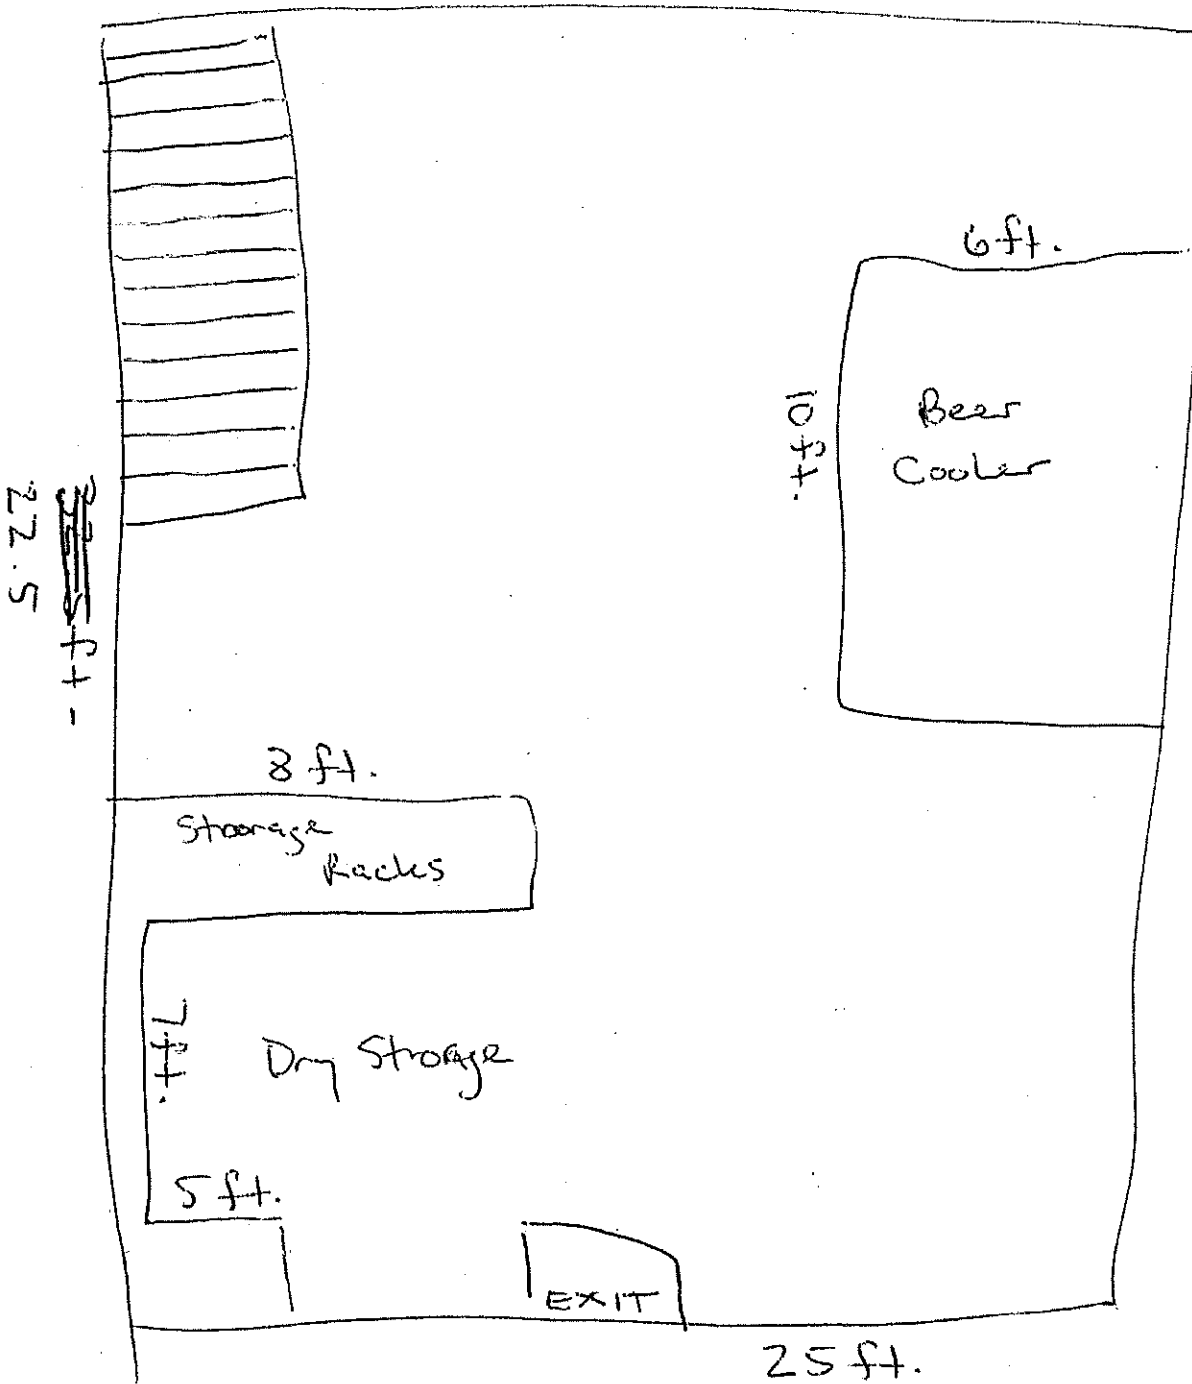 6 ft.
10 ft.
Beer
Cooler
22.5
ft.
8 ft.
Stoorage
Racks
7 ft.
Dry Storage
5 ft.
EXIT
25 ft.